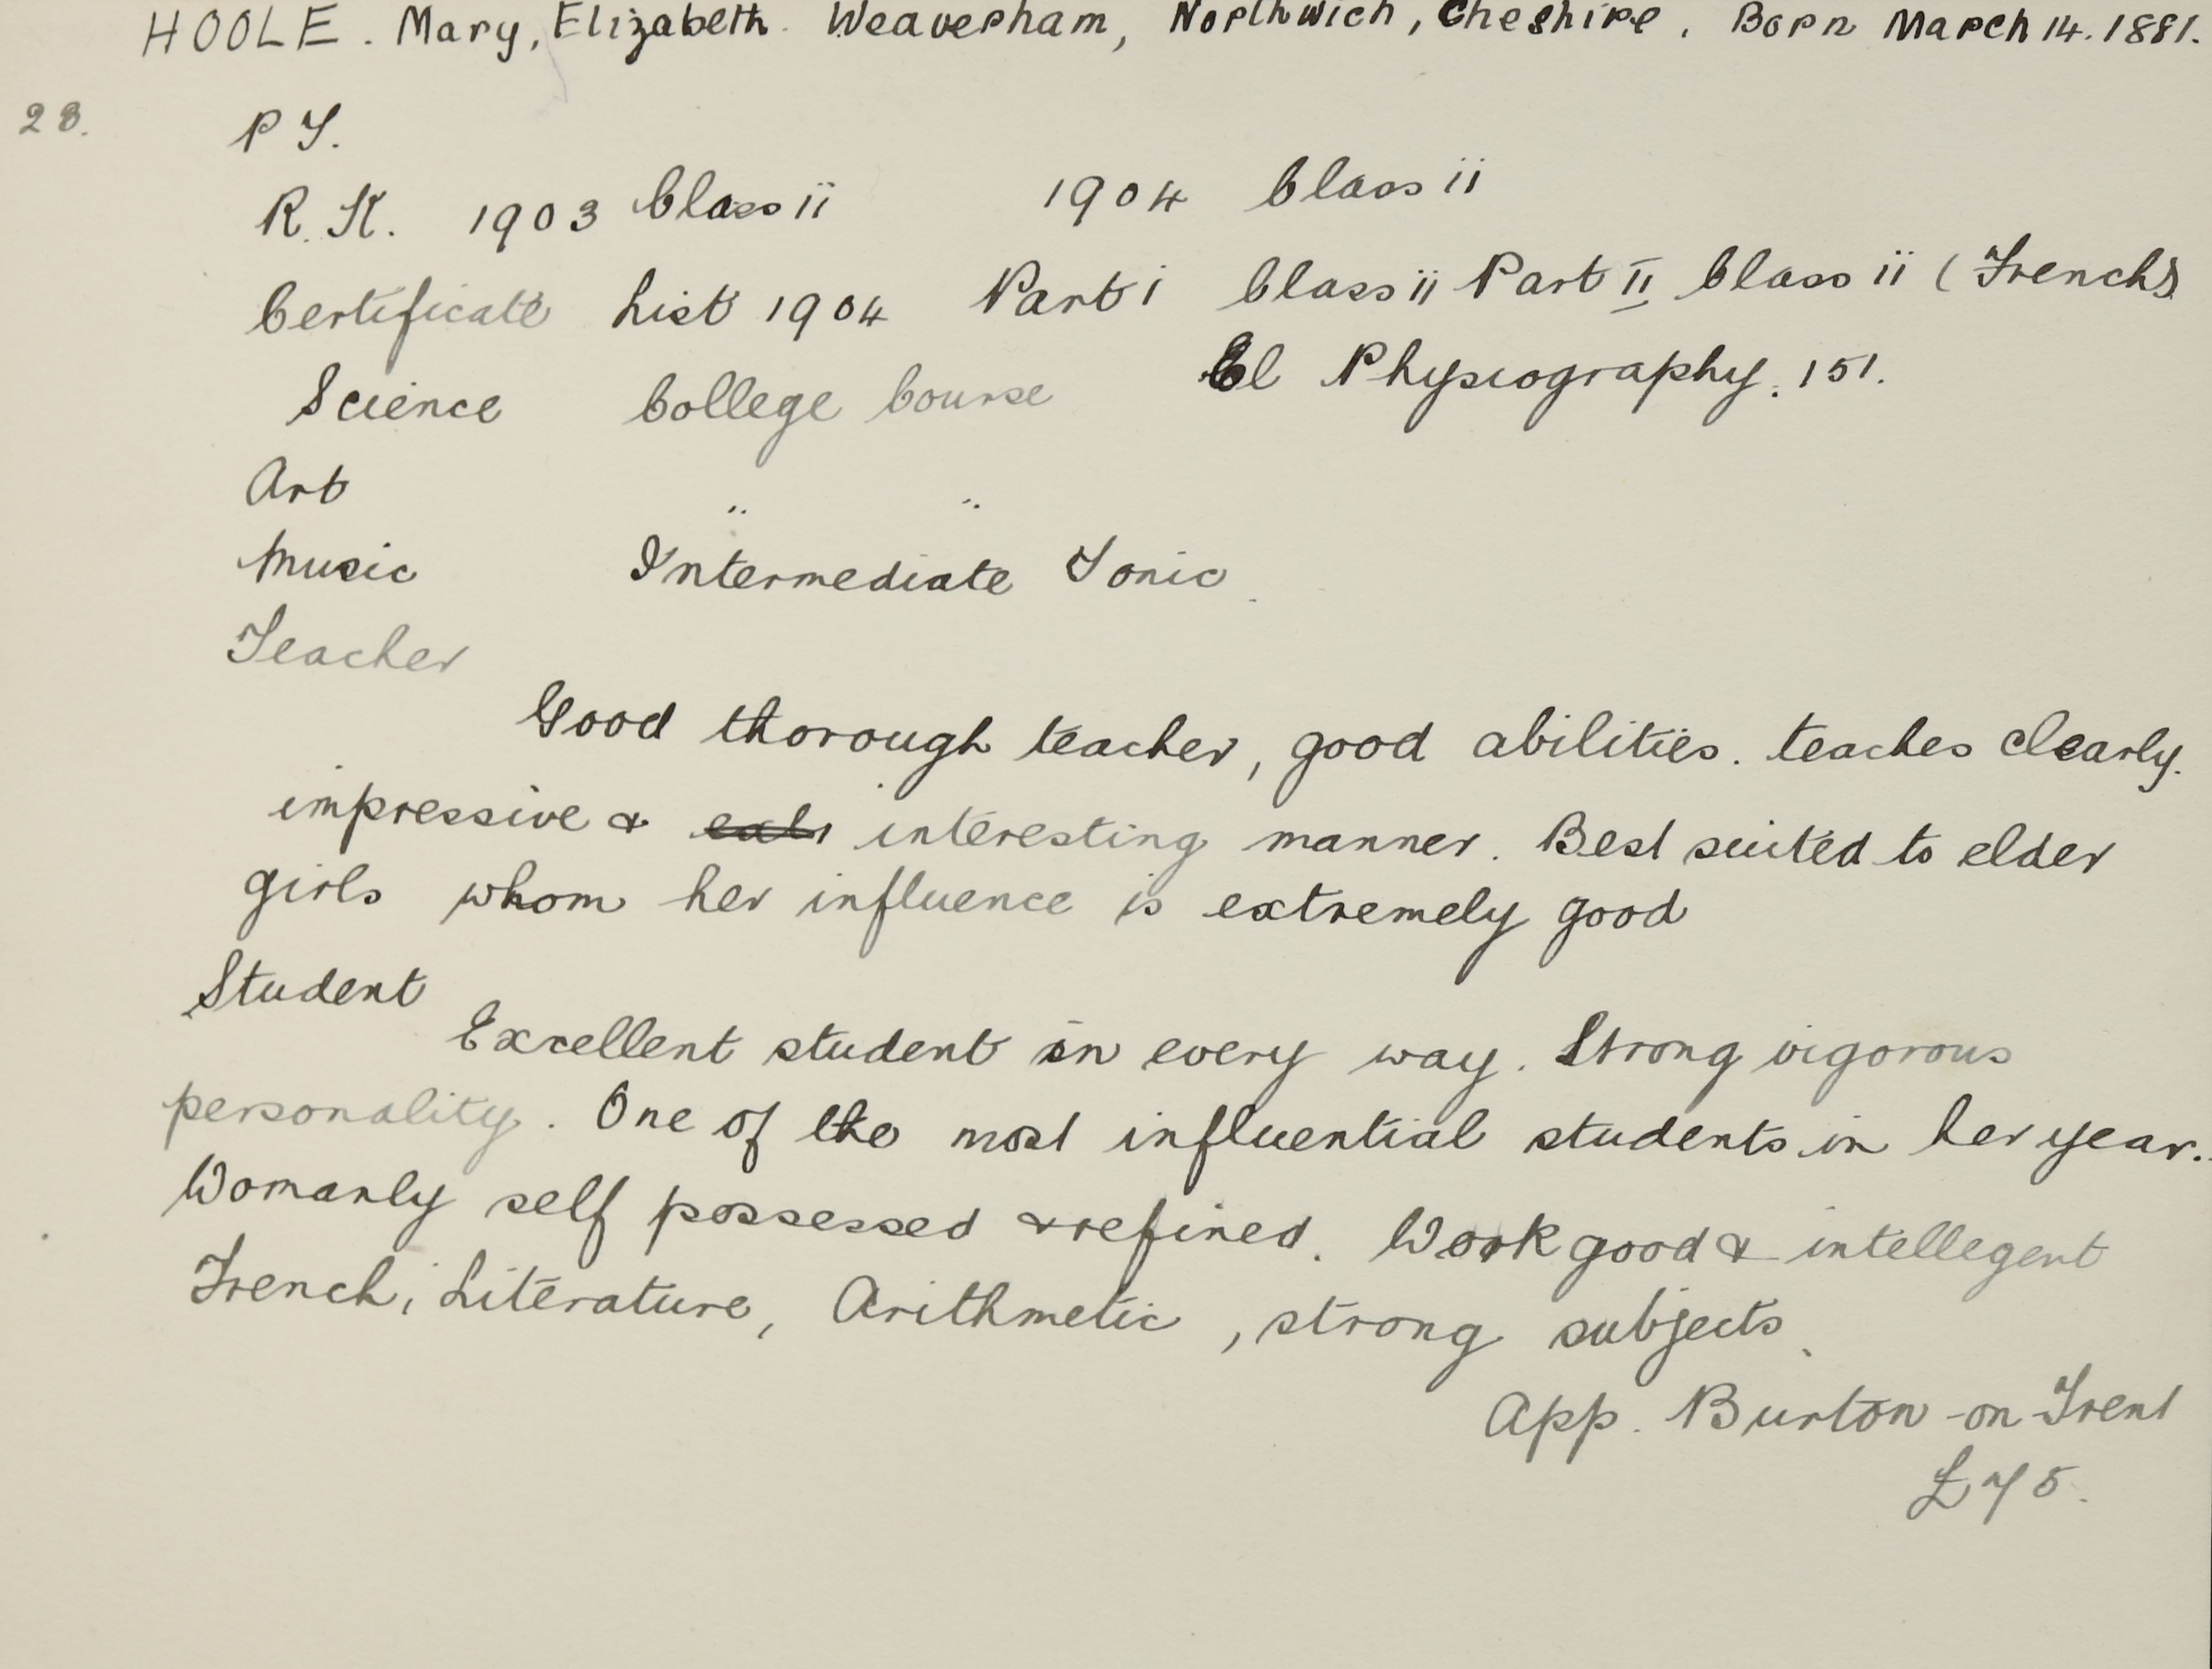 HOOLE. Mary, Elizabeth. Weaverham, Northwich, Cheshire. Born March 14. 1881.
28. P T.
R. K. 1903 Class ii 1904 Class ii
Certificate List 1904 Part i Class ii Part II Class ii (French)
Science College Course El Physiography. 151.
Art " "
Music Intermediate Tonic
Teacher
Good thorough teacher, good abilities. teaches clearly.
impressive & interesting manner. Best suited to elder
girls whom her influence is extremely good
Student
Excellent student in every way. Strong vigorous
personality. One of the most influential students in her year.
Womanly self possessed & refined. Work good & intellegent
French, Literature, Arithmetic, strong subjects.
App. Burton-on-Trent
£75.